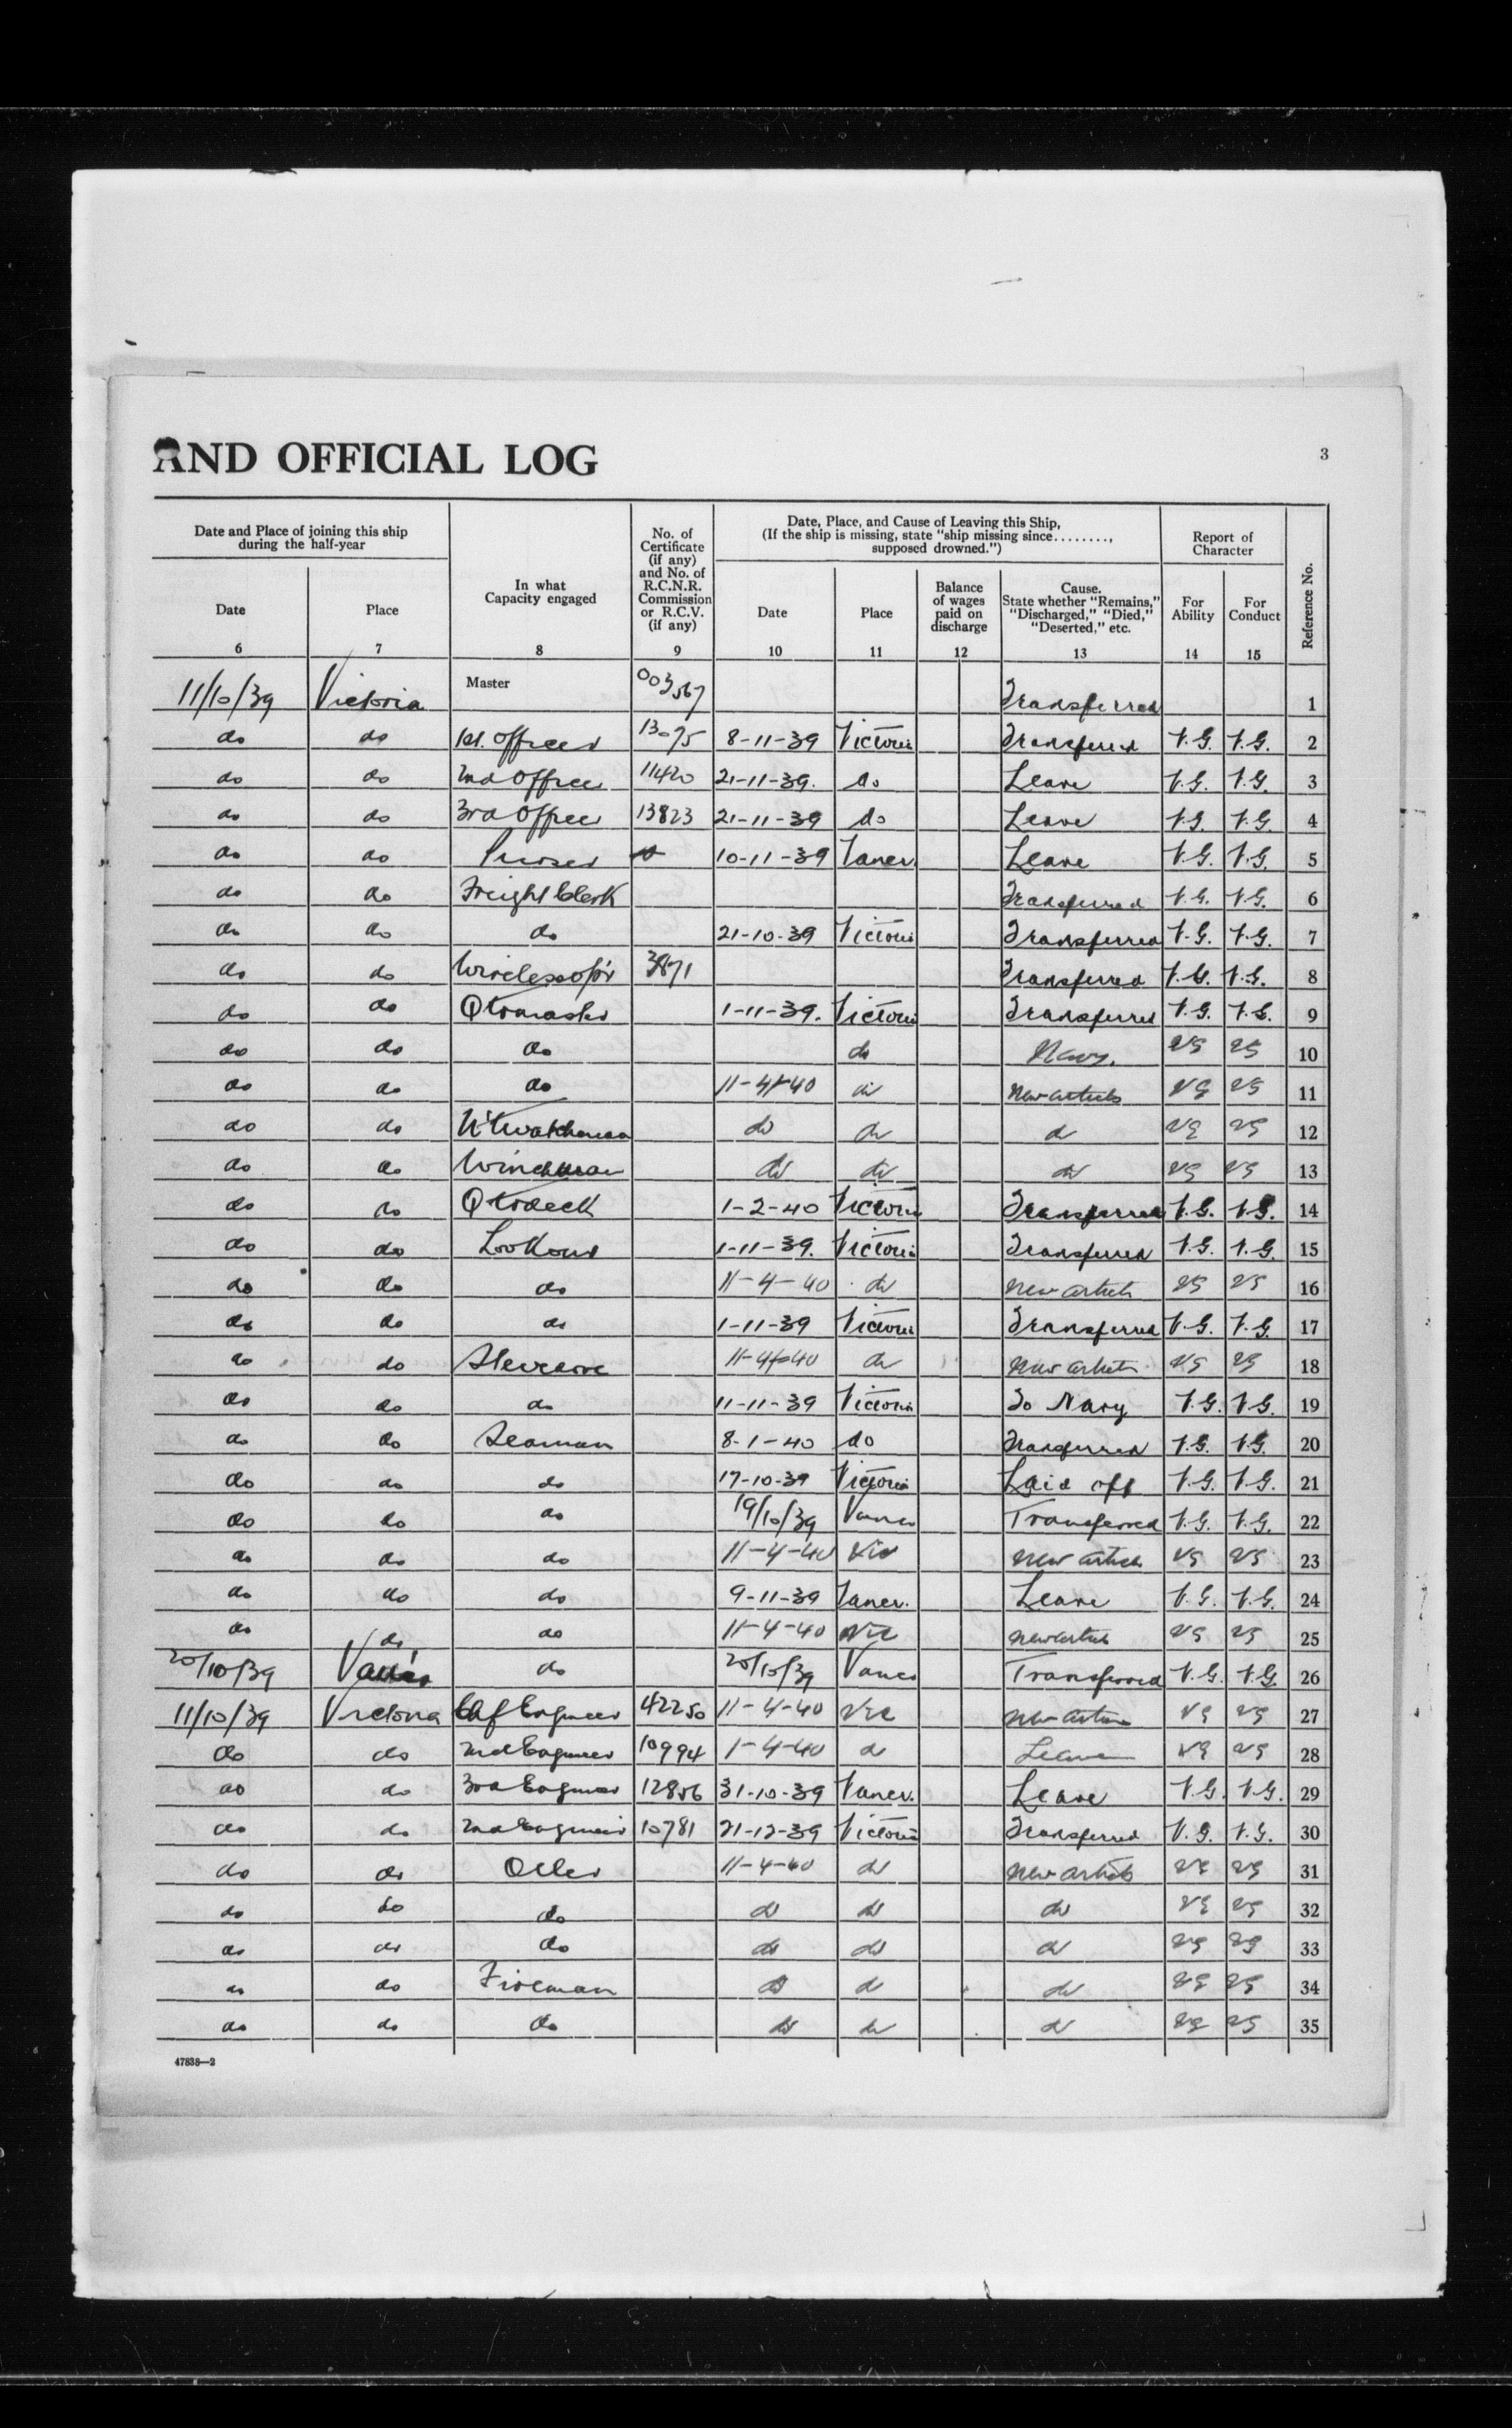 AND OFFICIAL LOG 3
Date and Place of joining this ship
during the half-year
In what
Capacity engaged
No. of
Certificate
(if any)
and No. of
R.C.N.R.
Commission
or R.C.V.
(if any)
Date, Place, and Cause of Leaving this Ship,
(If the ship is missing, state "ship missing since........,
supposed drowned.")
Report of
Character
Reference No.
Date Place
Date Place
Balance
of wages
paid on
discharge
Cause.
State whether "Remains,"
"Discharged," "Died,"
"Deserted," etc.
For
Ability
For
Conduct
6 7 8 9 10 11 12 13 14 15
11/10/39 Victoria Master 003567 Transferred 1
do do 1st. Officer 13075 8-11-39 Victoria Transferred V.G. V.G. 2
do do 2nd Officer 11420 21-11-39. do Leave V.G. V.G. 3
do do 3rd Officer 13823 21-11-39 do Leave V.G. V.G. 4
do do Purser 10-11-39 Vancr. Leave V.G. V.G. 5
do do Freight Clerk Transferred V.G. V.G. 6
do do do 21-10-39 Victoria Transferred V.G. V.G. 7
do do Wireless Op'r 3871 Transferred V.G. V.G. 8
do do Qtrmaster 1-11-39. Victoria Transferred V.G. V.G. 9
do do do do Navy. VG VG 10
do do do 11-4-40 do New articles VG VG 11
do do N'twatchman do do do VG VG 12
do do Winchman do do do VG VG 13
do do Qtrdeck 1-2-40 Victoria Transferred V.G. V.G. 14
do do Lookout 1-11-39. Victoria Transferred V.G. V.G. 15
do do do 11-4-40 do New articles VG VG 16
do do do 1-11-39 Victoria Transferred V.G. V.G. 17
do do Stevedore 11-4-40 do New articles VG VG 18
do do do 11-11-39 Victoria To Navy V.G. V.G. 19
do do Seaman 8-1-40 do Transferred V.G. V.G. 20
do do do 17-10-39 Victoria Laid off V.G. V.G. 21
do do do 19/10/39 Vanco Transferred V.G. V.G. 22
do do do 11-4-40 Vic New articles VG VG 23
do do do 9-11-39 Vancr. Leave V.G. V.G. 24
do do do 11-4-40 Vic New articles VG VG 25
20/10/39 Vanc'r do 20/10/39 Vanco Transferred V.G. V.G. 26
11/10/39 Victoria Chf Engineer 42250 11-4-40 Vic New articles VG VG 27
do do 2nd Engineer 10994 1-4-40 do Leave VG VG 28
do do 3rd Engineer 12856 31-10-39 Vancr. Leave V.G. V.G. 29
do do 2nd Engineer 10781 21-12-39 Victoria Transferred V.G. V.G. 30
do do Oiler 11-4-40 do New articles VG VG 31
do do do do do do VG VG 32
do do do do do do VG VG 33
do do Fireman do do do VG VG 34
do do do do do do VG VG 35
47838—2